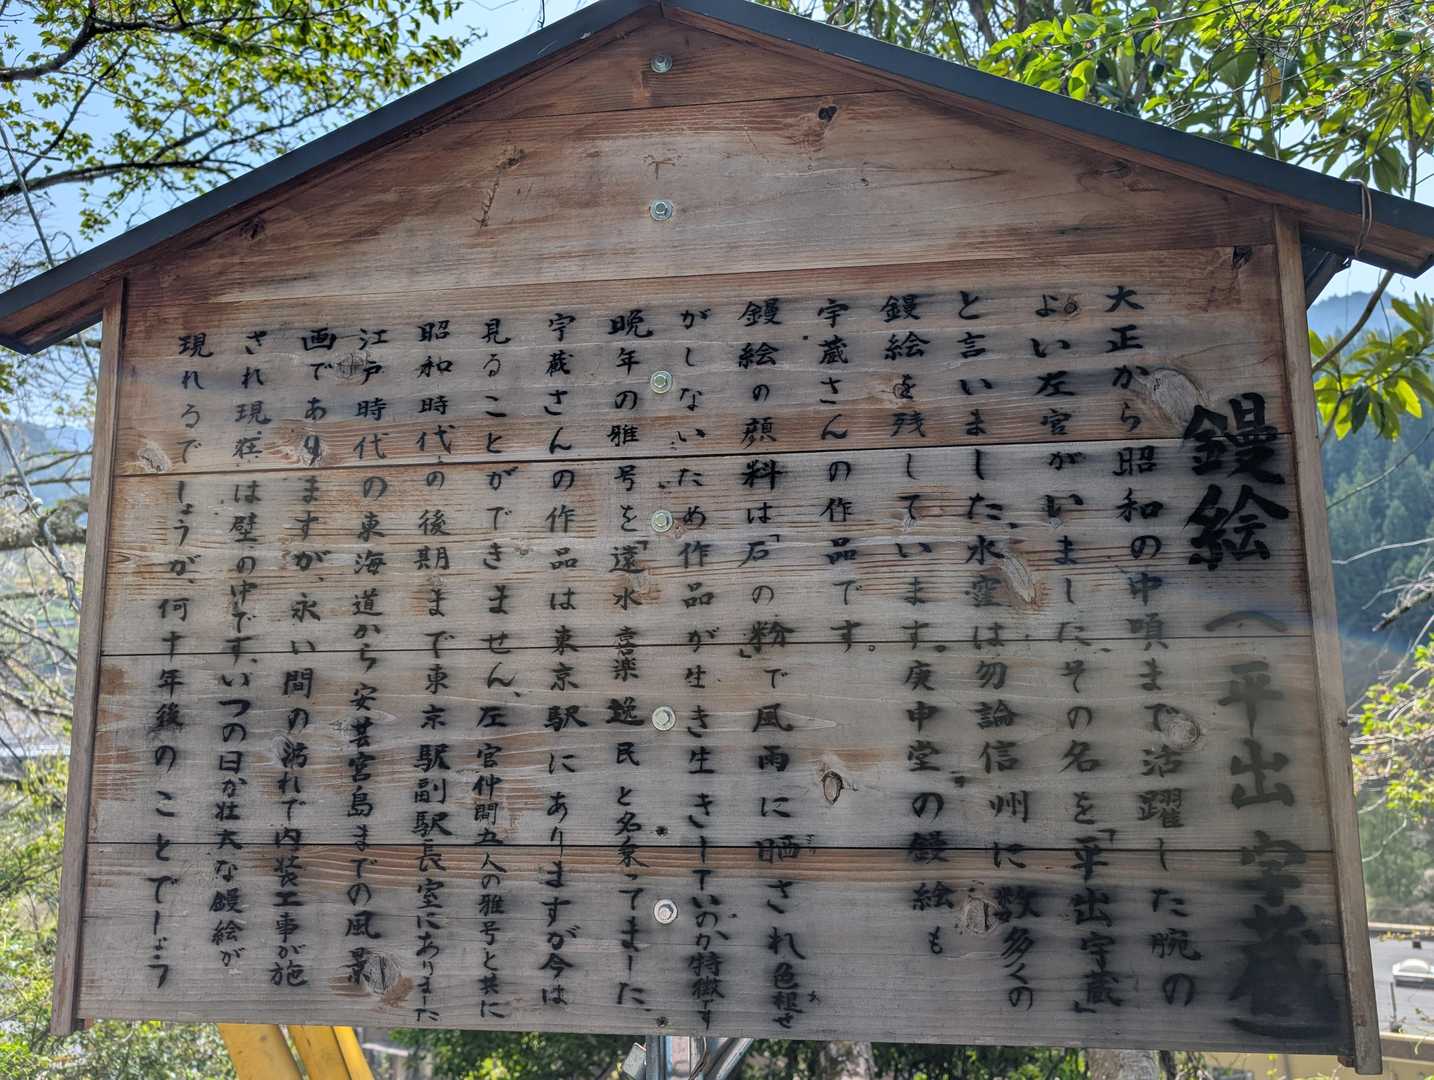 鏝絵 (平出 宇蔵)
大正から昭和の中頃まで活躍した腕の
よい左官がいました、その名を「平出宇蔵」
と言いました、水窪は勿論信州に数多くの
鏝絵を残しています。庚申堂の鏝絵も
宇蔵さんの作品です。
鏝絵の顔料は「石の粉」で風雨に晒され色褪せ
がしないため作品が生き生きしているのが特徴です
晩年の雅号を「遠水 喜楽 逸民 と名乗ってました、
宇蔵さんの作品は東京駅にありますが今は
見ることができません、左官仲間五人の雅号と共に
昭和時代の後期まで東京駅副駅長室にありました
江戸時代の東海道から安芸宮島までの風景
画でありますが、永い間の汚れで内装工事が施
され現在は壁の中です、いつの日か壮大な鏝絵が
現れるでしょうが、何十年後のことでしょう